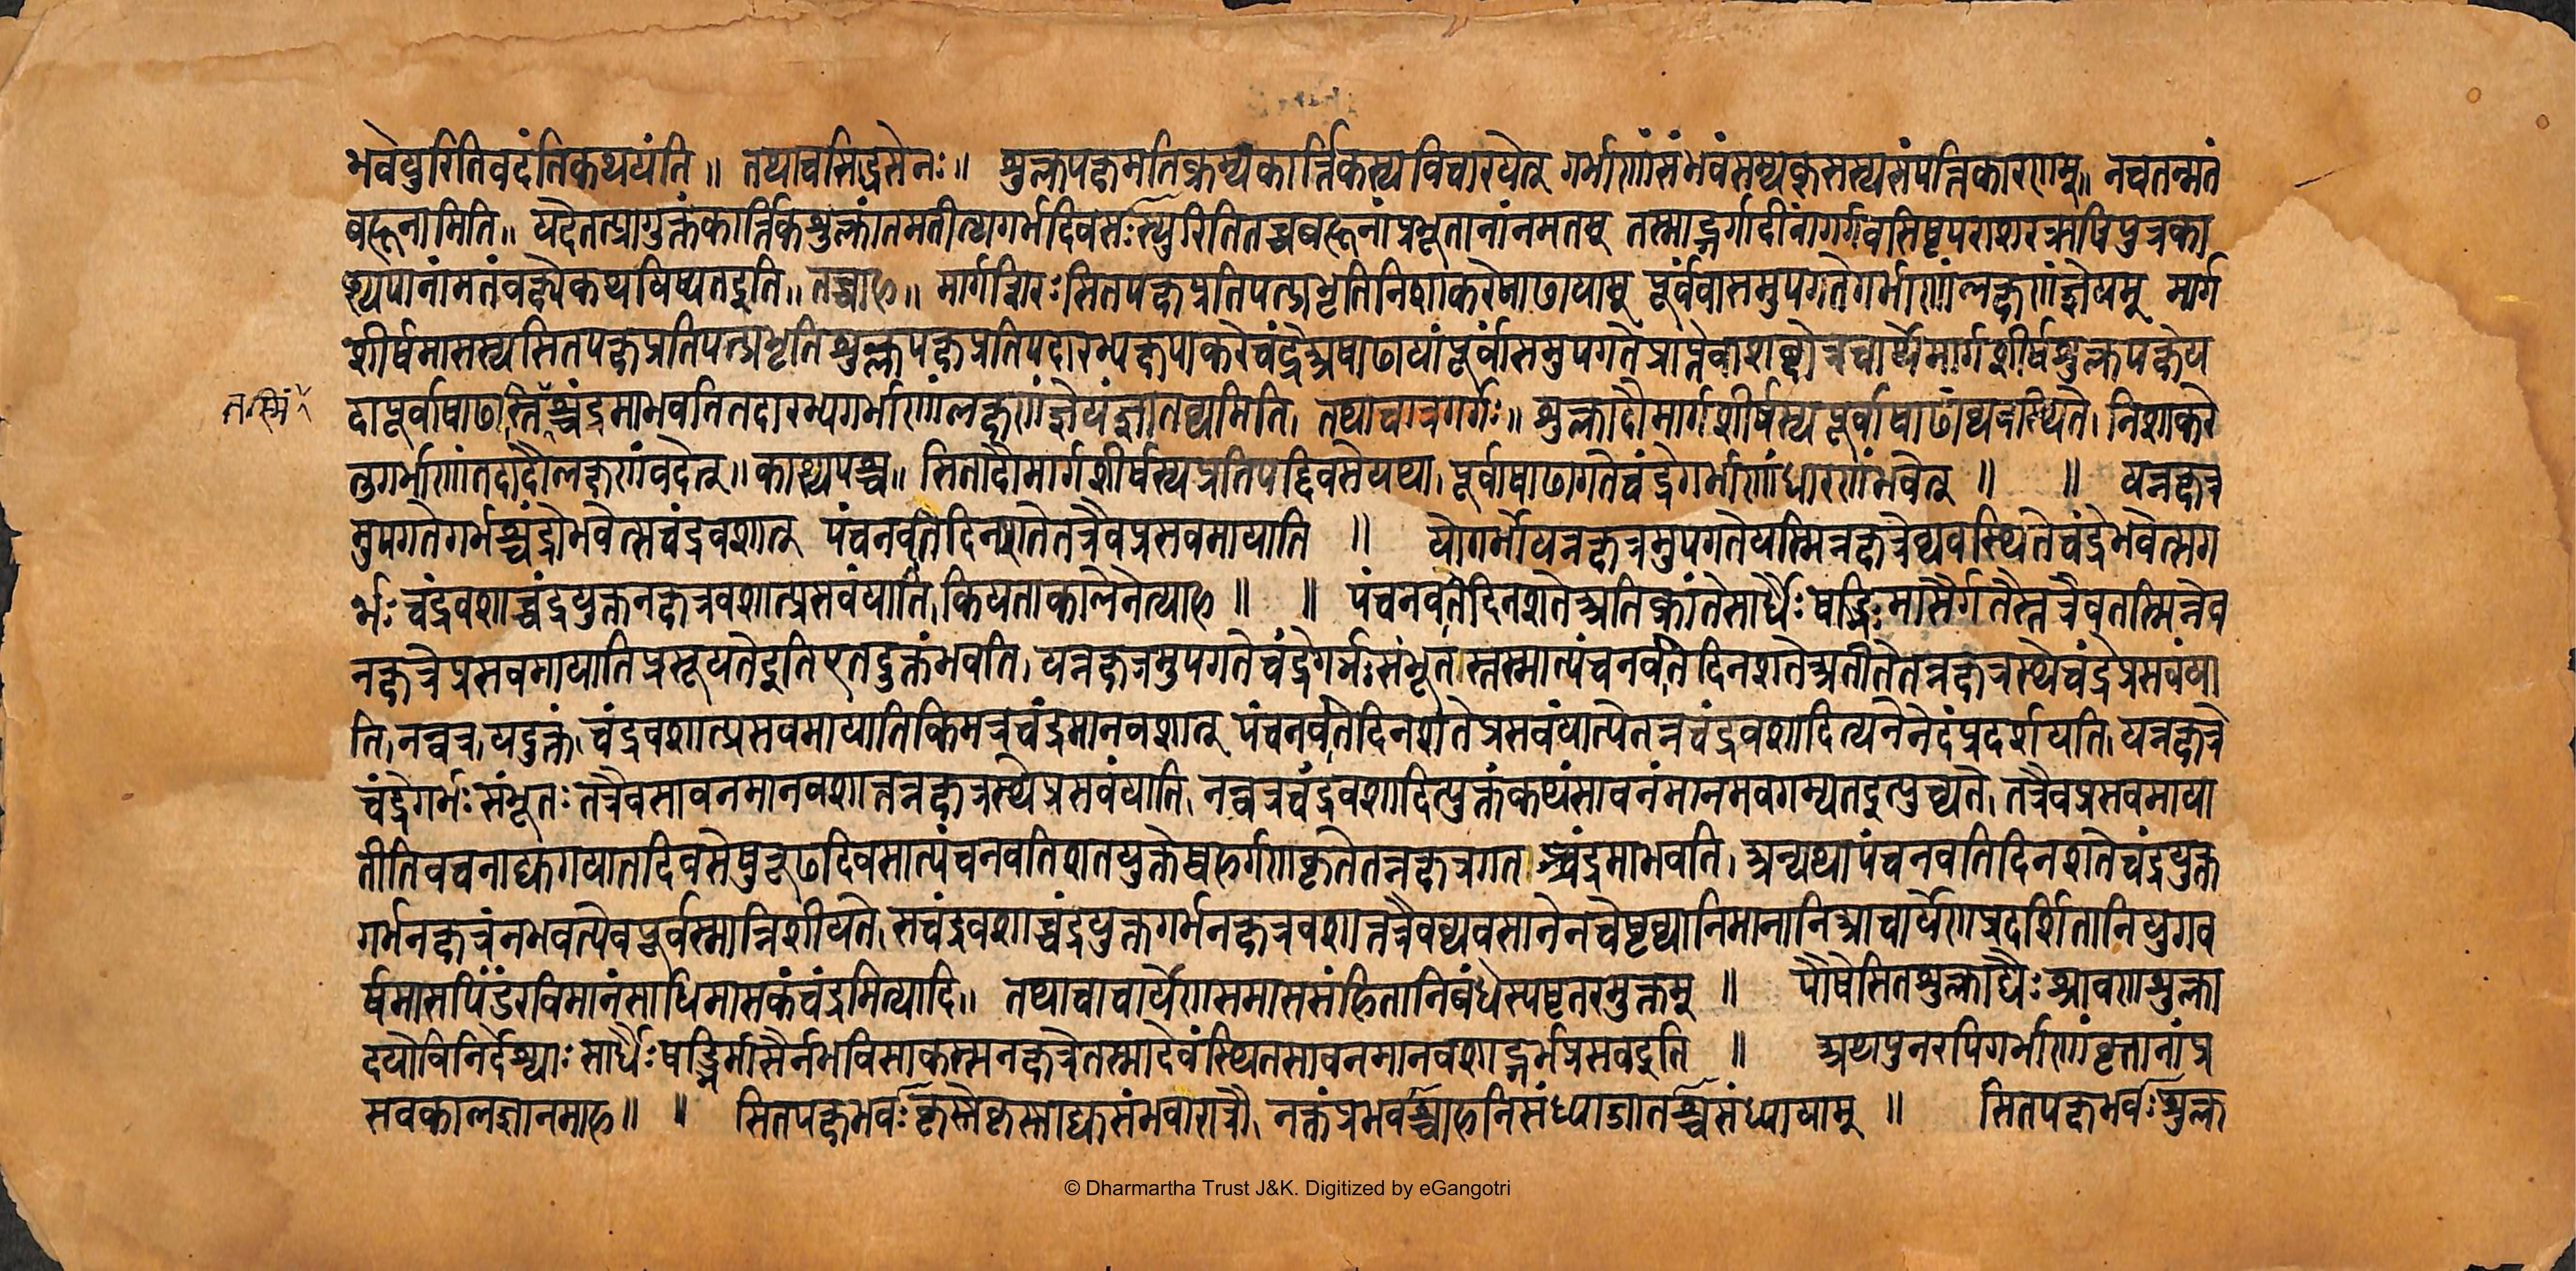 भवेयुरितिवदंतिकथयंति॥ तथाचसिद्धसेनः॥ शुक्लपक्षमतिक्रम्यकार्त्तिकस्यविचारयेत् गर्भाणांसंभवंसम्यक्सस्यसंपत्तिकारणम्॥ नचतन्मतं
बहूनामिति॥ यदेतत्प्रागुक्तंकार्त्तिकशुक्लांतमतीत्यगर्भदिवसःस्युरितितच्चबहूनांप्रभूतानांनमतम् तस्माद्गर्गादीनांगर्गवसिष्ठपराशरऋषिपुत्रका
श्यपानांमतंवक्ष्येकथयिष्यतइति॥ तच्चाह॥ मार्गशिरःसितपक्षप्रतिपत्प्रभृतिनिशाकरेषाढायाम् पूर्वंवासमुपगतेगर्भाणांलक्षणंज्ञेयम् मार्ग
शीर्षमासस्यसितपक्षप्रतिपत्प्रभृतिशुक्लपक्षप्रतिपदारभ्यक्षपाकरेचंद्रेअषाढायांपूर्वांसमुपगतेप्राप्तेवाशब्दोत्रचार्थेमार्गशीर्षशुक्लपक्षेय
दापूर्वाषाढास्तिँश्चंद्रमाभवतितदारभ्यगर्भाणांलक्षणंज्ञेयंज्ञातव्यमिति। तथाचात्रगर्गः॥ शुक्लादौमार्गशीर्षस्यपूर्वाषाढाव्यवस्थिते। निशाकरे
तस्मिं
तुगर्भाणांतदादौलक्षणंवदेत्॥ काश्यपश्च॥ सितादौमार्गशीर्षस्यप्रतिपद्दिवसेयथा। पूर्वाषाढागतेचंद्रेगर्भाणांधारणंभवेत् ॥ ॥ यन्नक्षत्र
मुपगतेगर्भश्चंद्रोभवेत्सचंद्रवशात् पंचनवतेदिनशतेतत्रैवप्रसवमायाति ॥ योगर्भोयन्नक्षत्रमुपगतेयस्मिन्नक्षत्रेव्यवस्थितेचंद्रेभवेत्सग
र्भःचंद्रवशाच्चंद्रयुक्तनक्षत्रवशात्प्रसवंयाति। कियताकालेनेत्याह ॥ ॥ पंचनवतेदिनशतेअतिक्रांतेसार्धैःषड्भिःमासैर्गतैस्तत्रैवतस्मिन्नेव
नक्षत्रेप्रसवमायातिप्रसूयतेइतिएतदुक्तंभवति। यन्नक्षत्रमुपगतेचंद्रेगर्भःसंभूतस्तस्मात्पंचनवतेदिनशतेअतीतेतन्नक्षत्रस्थेचंद्रेप्रसवंया
ति। नन्वत्र। यदुक्तं। चंद्रवशात्प्रसवमायातिकिमत्रचंद्रमानवशात् पंचनवतेदिनशतेप्रसवंयात्येतन्नचंद्रवशादित्यनेनेदंप्रदर्शयति। यन्नक्षत्रे
चंद्रेगर्भःसंभूतःतत्रैवसावनमानवशात्तन्नक्षत्रस्थेप्रसवंयाति। नन्वत्रचंद्रवशादित्युक्तंकथंसावनंमानमवगम्यतइत्युच्यते। तत्रैवप्रसवमाया
तीतिवचनाद्यगयातदिवसेपुरूढदिवसात्पंचनवतिशतयुक्तेष्वहर्गणकृतेतन्नक्षत्रगतश्चंद्रमाभवति। अन्यथापंचनवतिदिनशतेचंद्रयुक्त
गर्भनक्षत्रंनभवत्येवपूर्वस्मान्निशीयते। सचंद्रवशाच्चंद्रयुक्तगर्भनक्षत्रवशात्तत्रैवव्यवसानेनचेष्टव्यानिमानानिआचार्येणप्रदर्शितानियुगव
र्षमासपिंडंरविमानंसाधिमासकंचंद्रमित्यादि॥ तथाचाचार्येणसमाससंहितानिबंधेस्पष्टतरमुक्तम् ॥ पौषेसितशुक्लाद्यैःश्रावणशुक्ला
दयोविनिर्देश्याःसार्धैःषड्भिर्मासैर्नभविसाकस्सनक्षत्रेतस्मादेवंस्थितसावनमानवशाद्गर्भप्रसवइति ॥ अथपुनरपिगर्भाणांवृत्तानांप्र
सवकालज्ञानमाह॥ ॥ सितपक्षभवःकृस्नेकृस्नाद्यसंभवारात्रौ। नक्तंप्रभवश्चाहनिसंध्याज्ञातश्चसंध्यायाम् ॥ सितपक्षभवःशुक्ल
© Dharmartha Trust J&K. Digitized by eGangotri